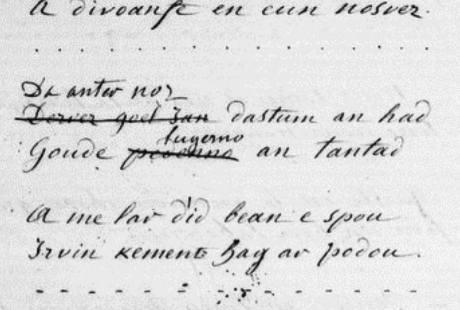 A divoanfe en eun nosver.
. . . . . . . . . . . . . .
Da anter noz
Derver goel Jan dastum an had
lugerno
Goude an tantad
A me lar did bean e spou
Irvin kement hag ar podou.
- - - - - - - - - - - -